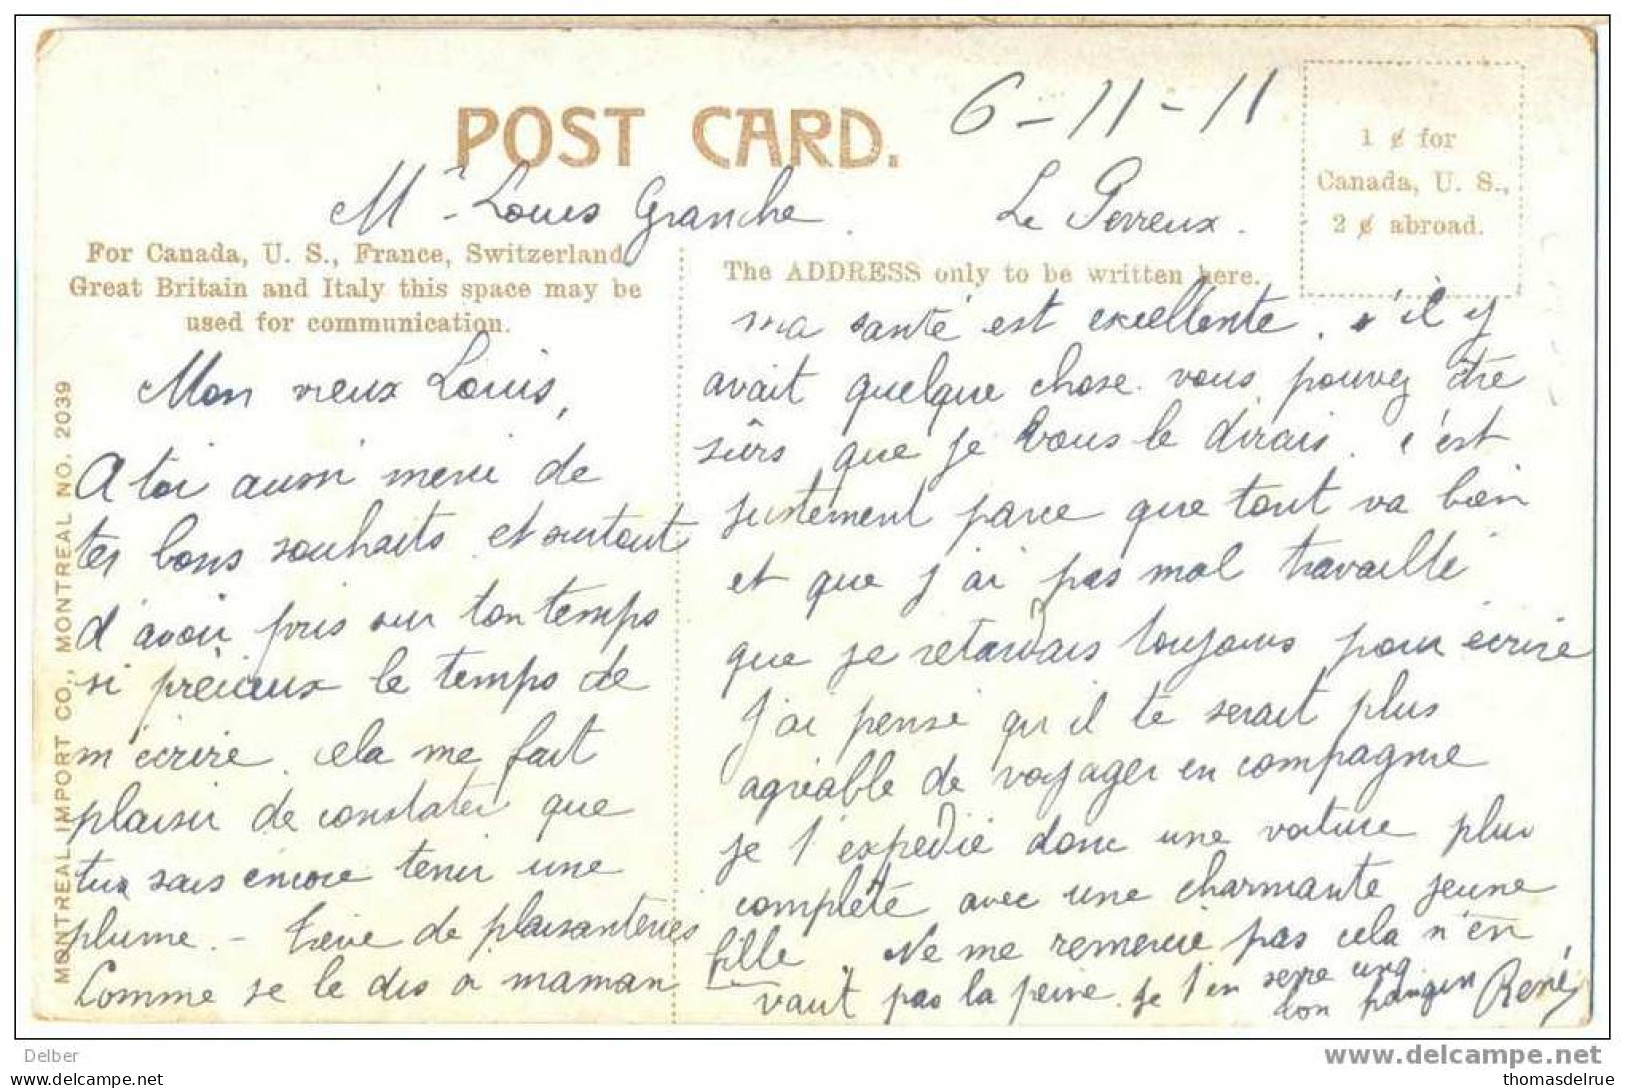 POST CARD.
6-11-11
1 ¢ for
Canada, U. S.,
2 ¢ abroad.
Mr Louis Granche.
Le Perreux.
For Canada, U. S., France, Switzerland,
Great Britain and Italy this space may be
used for communication.
The ADDRESS only to be written here.
MONTREAL IMPORT CO., MONTREAL NO. 2039
Mon vieux Louis,
A toi aussi merci de
tes bons souhaits et surtout
d'avoir pris sur ton temps
si précieux le temps de
m'écrire. cela me fait
plaisir de constater que
tu sais encore tenir une
plume. - trève de plaisanteries
Comme je le dis à maman
ma santé est excellente. s'il y
avait quelque chose vous pouvez être
sûrs que je vous le dirais. c'est
justement parce que tout va bien
et que j'ai pas mal travaillé
que je retardais toujours pour écrire
J'ai pensé qu'il te serait plus
agréable de voyager en compagnie
je t'expédie donc une voiture plus
complète avec une charmante jeune
fille. Ne me remercie pas cela n'en
vaut pas la peine. je t'en serre cinq
ton frangin René
Delber
www.delcampe.net
thomasdelrue